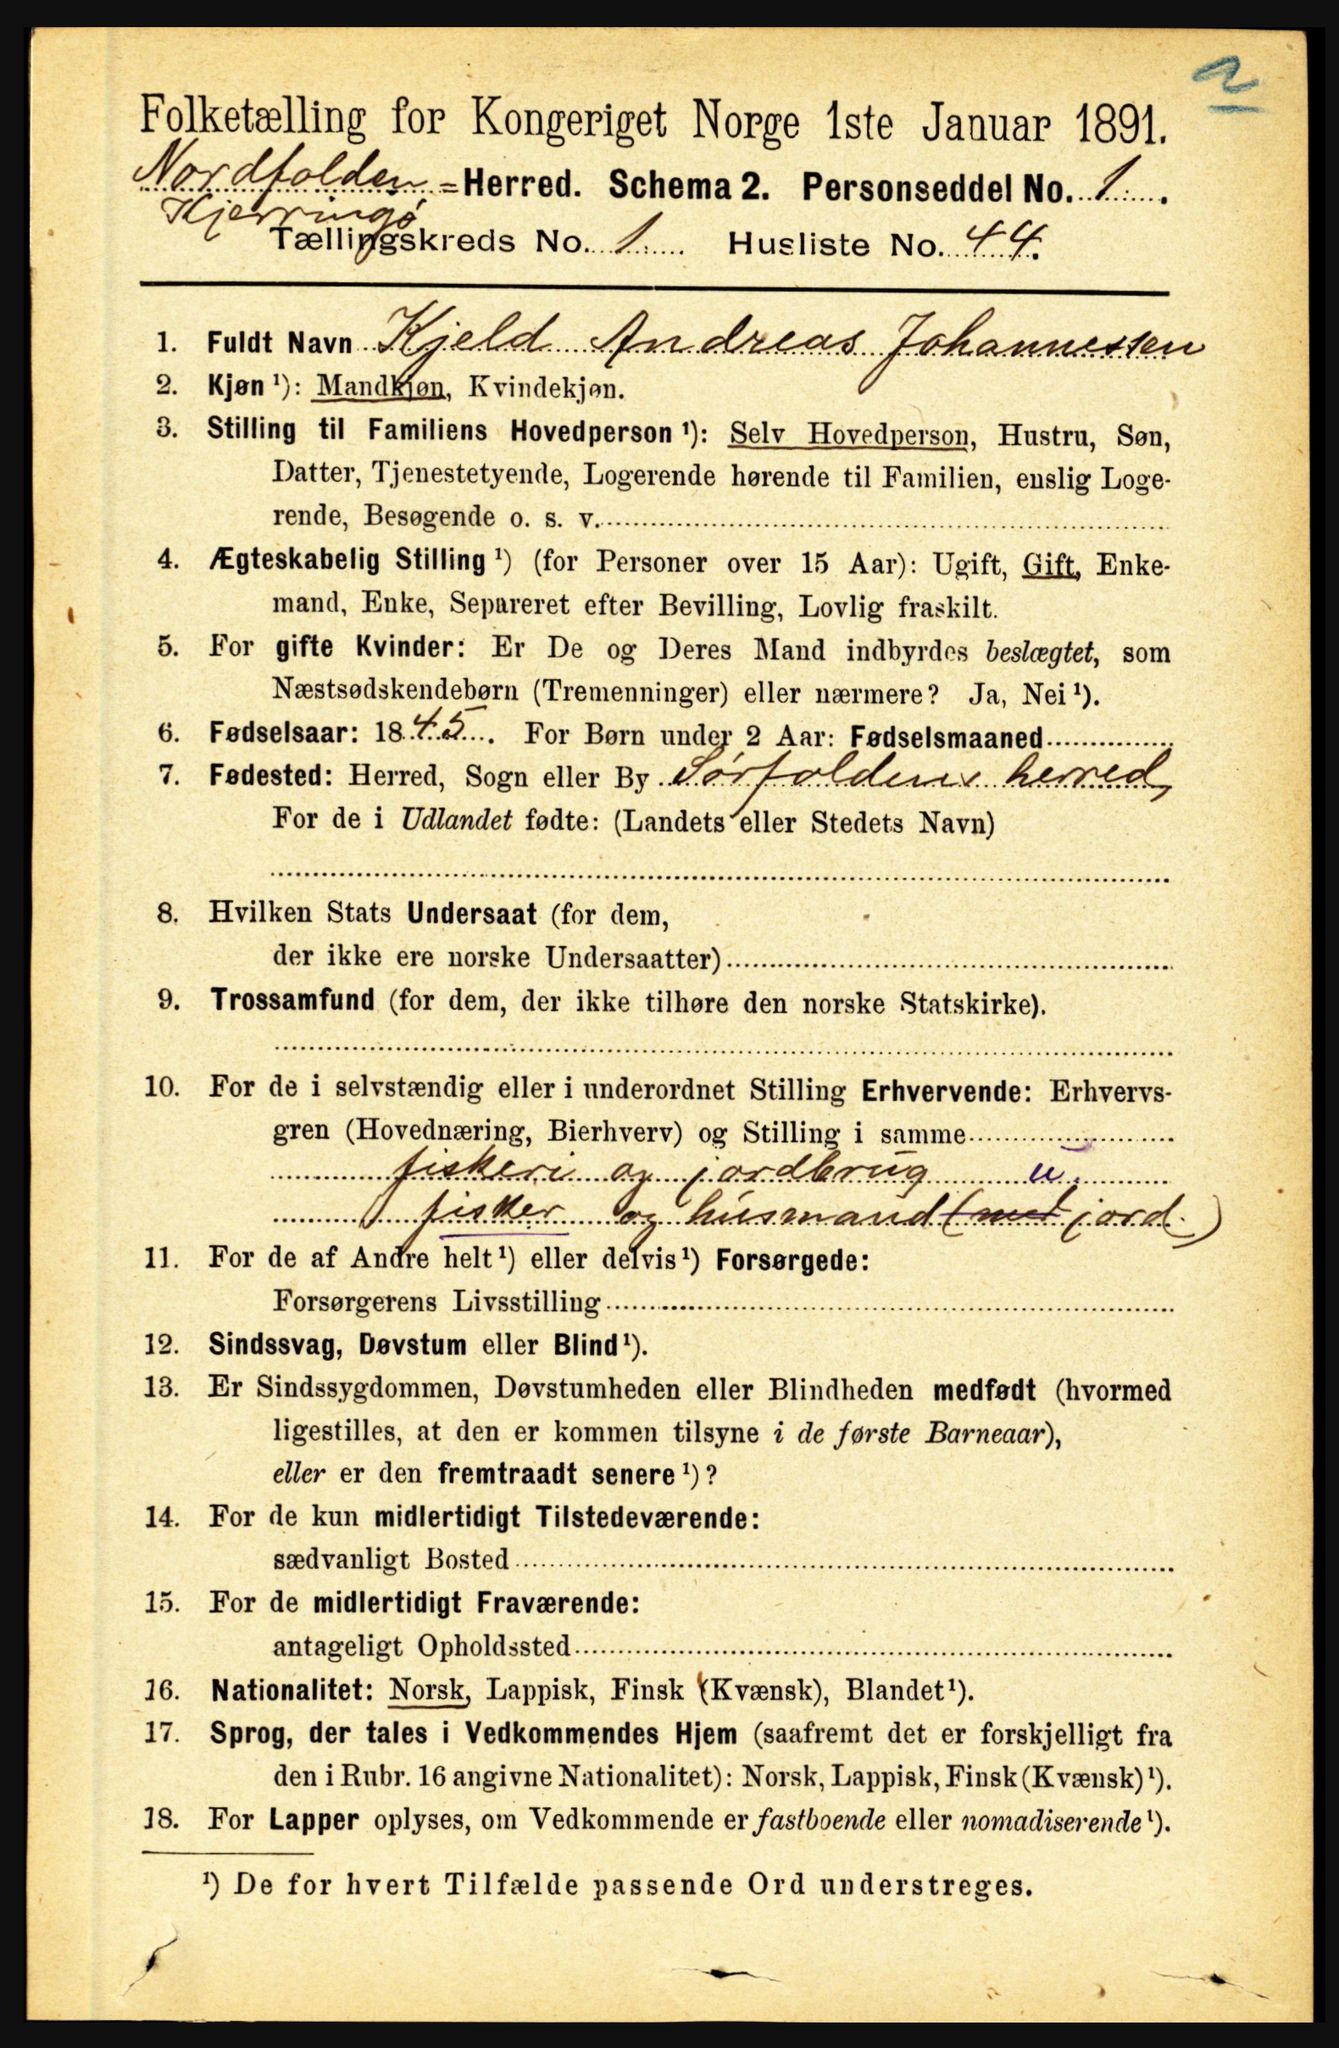 2
Folketælling for Kongeriget Norge 1ste Januar 1891.
Nordfolden = Herred. Schema 2. Personseddel No. 1.
Kjerringø
Tællingskreds No. 1. Husliste No. 44.
1. Fuldt Navn Kjeld Andreas Johannessen
2. Kjøn ¹): Mandkjøn, Kvindekjøn.
3. Stilling til Familiens Hovedperson ¹): Selv Hovedperson, Hustru, Søn,
Datter, Tjenestetyende, Logerende hørende til Familien, enslig Loge-
rende, Besøgende o. s. v.
4. Ægteskabelig Stilling ¹) (for Personer over 15 Aar): Ugift, Gift, Enke-
mand, Enke, Separeret efter Bevilling, Lovlig fraskilt.
5. For gifte Kvinder: Er De og Deres Mand indbyrdes beslægtet, som
Næstsødskendebørn (Tremenninger) eller nærmere? Ja, Nei ¹).
6. Fødselsaar: 1845. For Børn under 2 Aar: Fødselsmaaned
7. Fødested: Herred, Sogn eller By Sørfoldens herred,
For de i Udlandet fødte: (Landets eller Stedets Navn)
8. Hvilken Stats Undersaat (for dem,
der ikke ere norske Undersaatter)
9. Trossamfund (for dem, der ikke tilhøre den norske Statskirke).
10. For de i selvstændig eller i underordnet Stilling Erhvervende: Erhvervs-
gren (Hovednæring, Bierhverv) og Stilling i samme
fiskeri og jordbrug u.
fisker og husmand (med jord.)
11. For de af Andre helt ¹) eller delvis ¹) Forsørgede:
Forsørgerens Livsstilling
12. Sindssvag, Døvstum eller Blind ¹).
13. Er Sindssygdommen, Døvstumheden eller Blindheden medfødt (hvormed
ligestilles, at den er kommen tilsyne i de første Barneaar),
eller er den fremtraadt senere ¹)?
14. For de kun midlertidigt Tilstedeværende:
sædvanligt Bosted
15. For de midlertidigt Fraværende:
antageligt Opholdssted
16. Nationalitet: Norsk, Lappisk, Finsk (Kvænsk), Blandet ¹).
17. Sprog, der tales i Vedkommendes Hjem (saafremt det er forskjelligt fra
den i Rubr. 16 angivne Nationalitet): Norsk, Lappisk, Finsk (Kvænsk) ¹).
18. For Lapper oplyses, om Vedkommende er fastboende eller nomadiserende ¹).
¹) De for hvert Tilfælde passende Ord understreges.